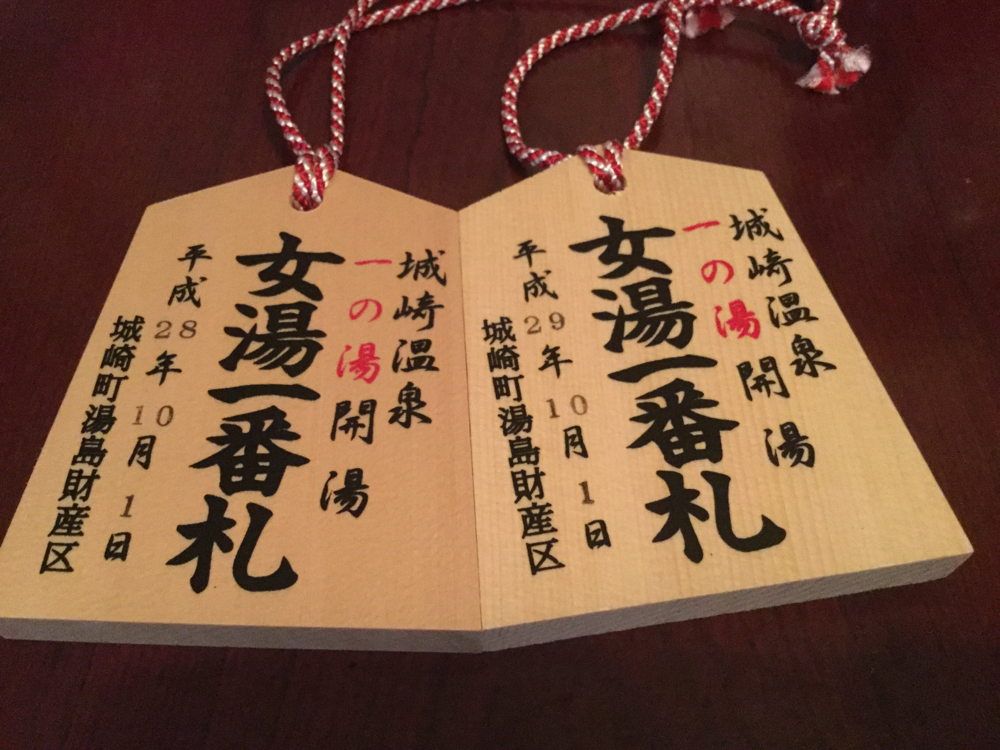 城崎温泉
一の湯開湯
女湯一番札
平成29年10月1日
城崎町湯島財産区
城崎温泉
一の湯開湯
女湯一番札
平成28年10月1日
城崎町湯島財産区